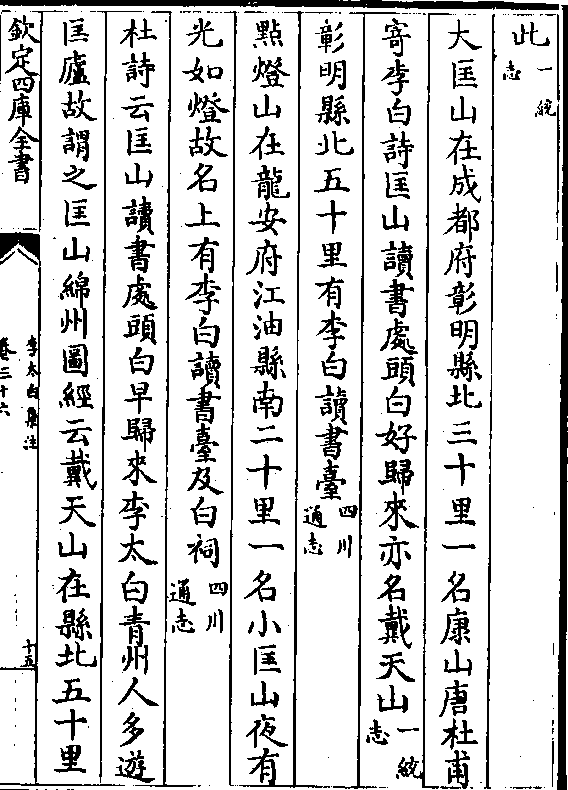 此一統志
大匡山在成都府彰明縣北三十里一名康山唐杜甫
寄李白詩匡山讀書處頭白好歸來亦名戴天山一統志
彰明縣北五十里有李白讀書臺四川通志
點燈山在龍安府江油縣南二十里一名小匡山夜有
光如燈故名上有李白讀書臺及白祠四川通志
杜詩云匡山讀書處頭白早歸來李太白青州人多遊
匡廬故謂之匡山綿州圖經云戴天山在縣北五十里
欽定四庫全書
李太白集注
卷三十六
十五